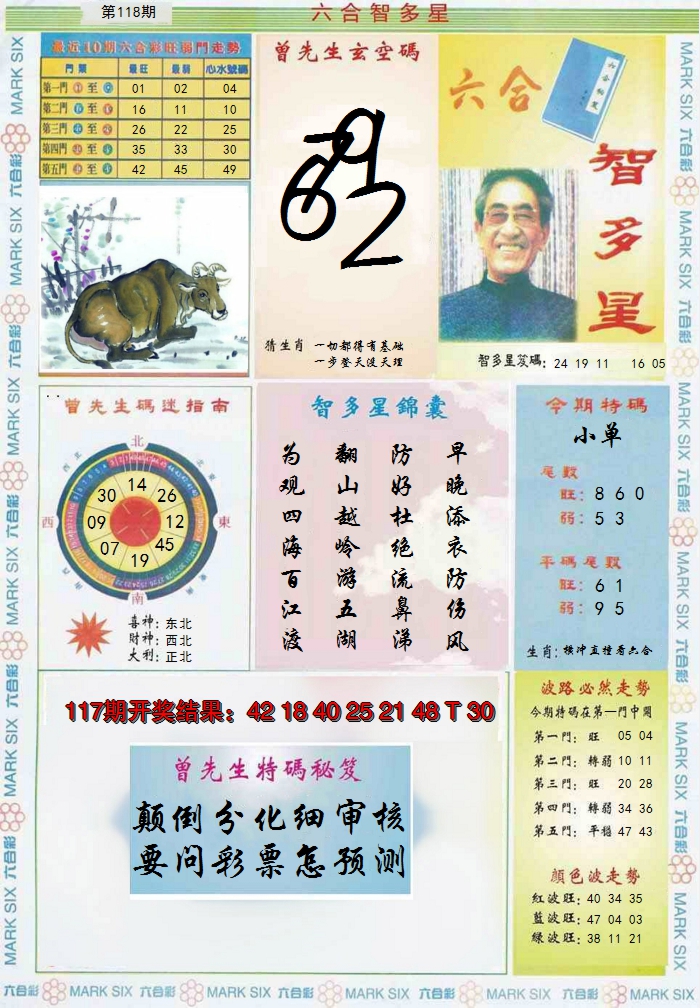 第118期
六合智多星
最近10期六合彩旺弱門走勢
門 類 最旺 最弱 心水號碼
第一門 至 01 02 04
第二門 至 16 11 10
第三門 至 26 22 25
第四門 至 35 33 30
第五門 至 42 45 49
曾先生玄空碼
猜生肖 一切都得有基础
一步登天没天理
六合
智多星
智多星笈碼: 24 19 11 16 05
曾先生碼迷指南
北
西
東
南
14
30
26
09
12
07
45
19
喜神: 东北
財神: 西北
大利: 正北
智多星錦囊
早晚添衣防伤风
防好杜绝流鼻涕
翻山越岭游五湖
为观四海百江渡
今期特碼
小单
尾數
旺: 8 6 0
弱: 5 3
平碼尾數
旺: 6 1
弱: 9 5
生肖: 横冲直撞看六合
117期开奖结果: 42 18 40 25 21 48 T 30
曾先生特碼秘笈
颠倒分化细审核
要问彩票怎预测
波路必然走勢
今期特碼在第一門中開
第一門: 旺 05 04
第二門: 轉弱 10 11
第三門: 旺 20 28
第四門: 轉弱 34 36
第五門: 平穩 47 43
顏色波走勢
紅波旺: 40 34 35
藍波旺: 47 04 03
綠波旺: 38 11 21
MARK SIX 六合彩